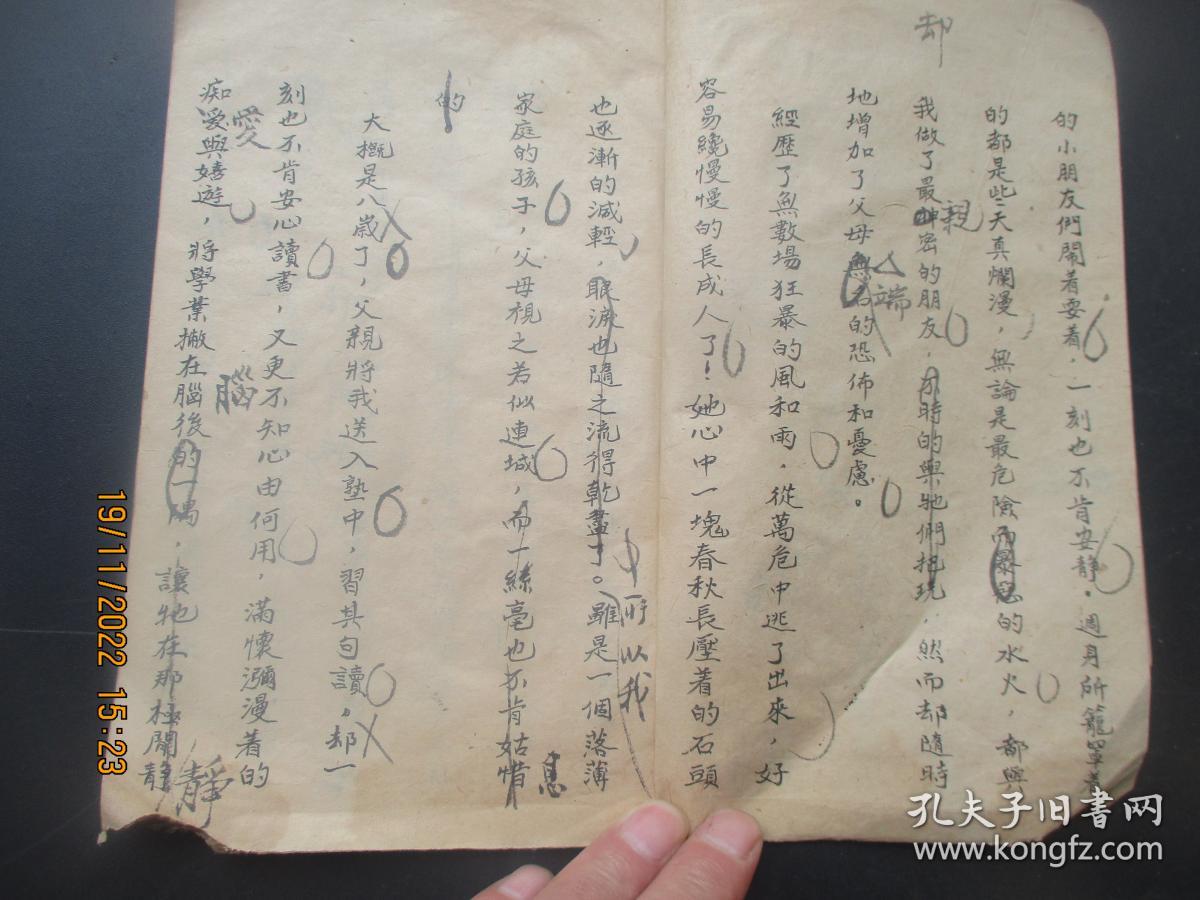 却
的小朋友們鬧着耍着，一刻也不肯安靜。週身所籠罩着
的都是些天真爛漫，無論是最危險而暴惡的水火，都與
我做了最神密的朋友，不時的與牠們把玩，然而却隨時
親
地增加了父母無名的恐佈和憂慮。
端
經歷了無數場狂暴的風和雨，從萬危中逃了出來，好
容易纔慢慢的長成人了！她心中一塊春秋長壓着的石頭
也逐漸的減輕，眼淚也隨之流得乾盡了。雖是一個落薄
所以我
家庭的孩子，父母視之若似連城，而一絲毫也不肯姑惜
息
的
大概是八歲了，父親將我送入塾中，習其句讀。却一
刻也不肯安心讀書，又更不知心由何用，滿懷瀰漫着的
愛
痴愛與嬉遊，將學業撇在腦後的一隅，讓牠在那極闃靜
腦
靜
19/11/2022 15:23
孔夫子旧书网
www.kongfz.com